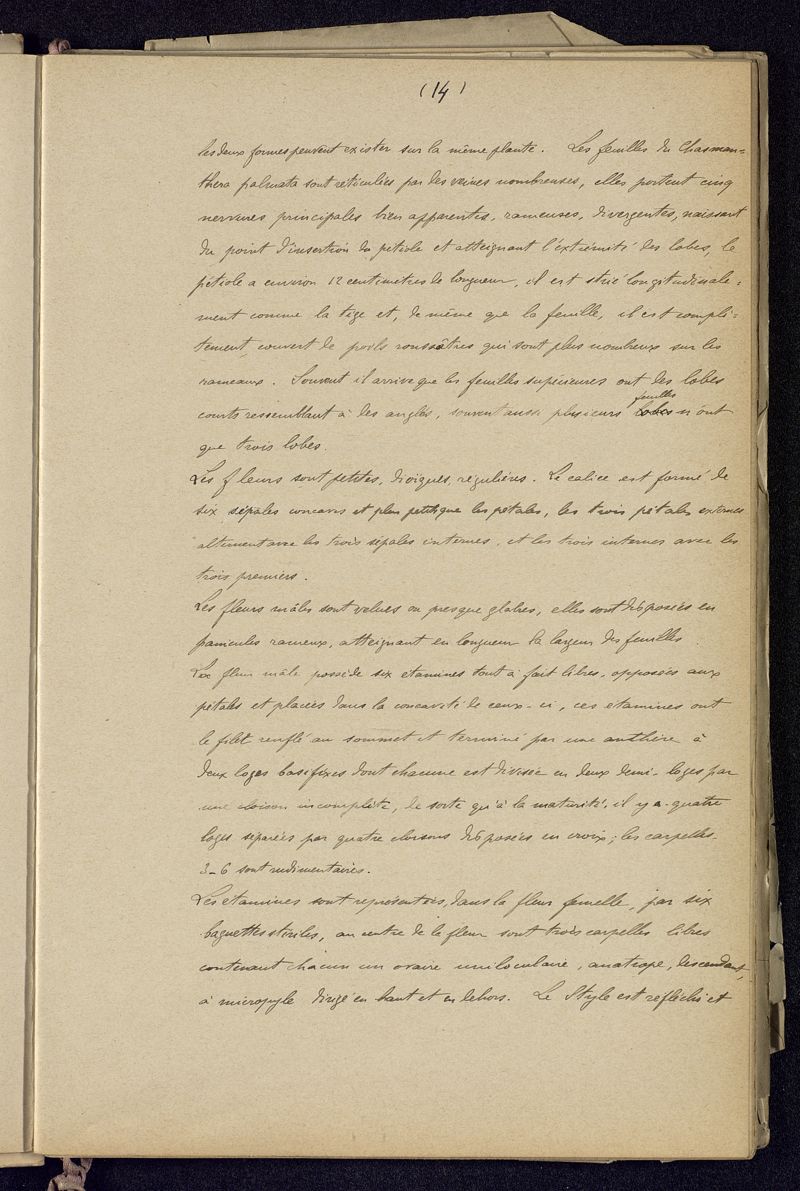 (14)
les deux formes peuvent exister sur la même plante. Les feuilles du Chasman=
thera palmata sont réticulées par des veines nombreuses, elles portent cinq
nervures principales bien apparentes, rameuses, divergentes, naissant
du point d'insertion du pétiole et atteignant l'extrémité des lobes, le
pétiole a environ 12 centimètres de longueur, il est strié longitudinale=
ment comme la tige et, de même que la feuille, il est complè=
tement couvert de poils roussâtres qui sont plus nombreux sur les
rameaux. Souvent il arrive que les feuilles supérieures ont des lobes
courts ressemblant à des angles, souvent aussi plusieurs feuilles n'ont
que trois lobes.
Les fleurs sont petites, dioïques, régulières. Le calice est formé de
six sépales concaves et plus petits que les pétales, les trois pétales externes
alternent avec les trois sépales internes, et les trois internes avec les
trois premiers.
Les fleurs mâles sont velues ou presque glabres, elles sont disposées en
panicules rameux, atteignant en longueur la largeur des feuilles
La fleur mâle possède six étamines tout à fait libres, opposées aux
pétales et placées dans la concavité de ceux-ci, ces étamines ont
le filet renflé au sommet et terminé par une anthère à
deux loges basifixes dont chacune est divisée en deux demi-loges par
une cloison incomplète, de sorte qu'à la maturité, il y a quatre
loges séparées par quatre cloisons disposées en croix; les carpelles
3-6 sont rudimentaires.
Les étamines sont représentées, dans la fleur femelle, par six
baguettes stériles, au centre de la fleur sont trois carpelles libres
contenant chacun un ovaire uniloculaire, anatrope, descendant,
à micropyle dirigé en haut et en dehors. Le Style est réfléchi et